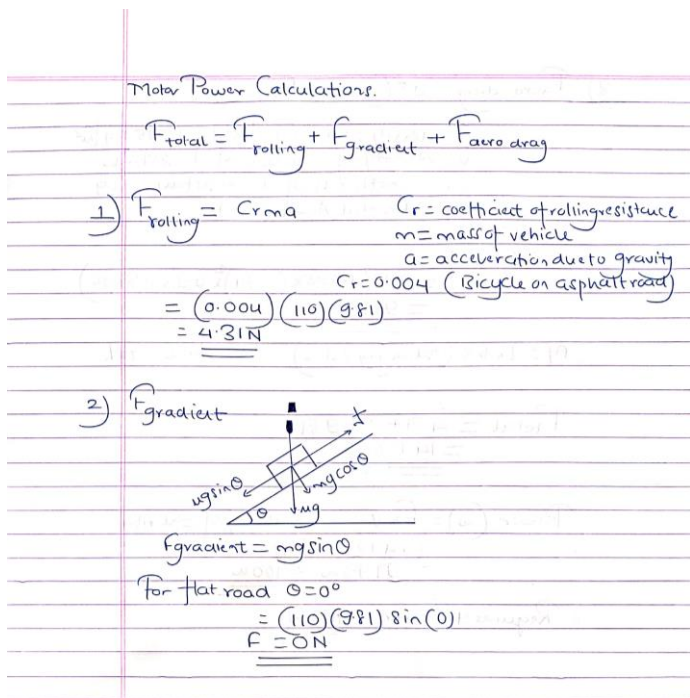 Motor Power Calculations.
Ftotal = Frolling + Fgradient + Faero drag
1) Frolling = Crma
Cr = coefficient of rolling resistance
m = mass of vehicle
a = acceleration due to gravity
Cr = 0.004 (Bicycle on asphalt road)
= (0.004) (110) (9.81)
= 4.31N
2) Fgradient
mgsinθ
mgcosθ
θ
mg
Fgradient = mgsinθ
For flat road θ=0°
= (110) (9.81) sin(0)
F = 0N